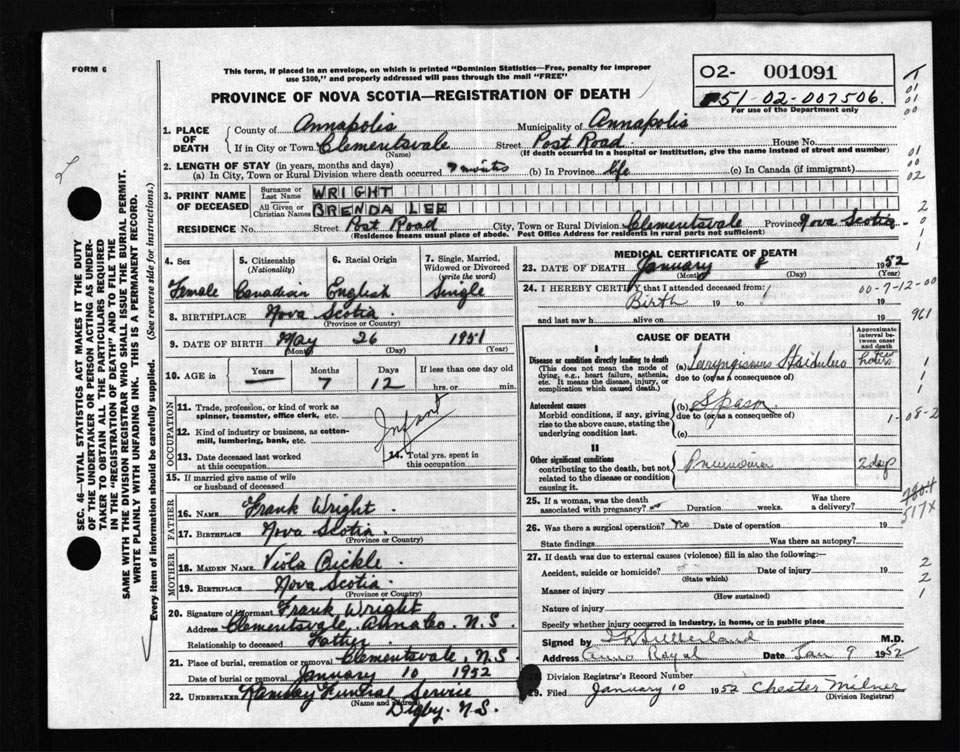 FORM 6
This form, if placed in an envelope, on which is printed "Dominion Statistics—Free, penalty for improper
use $300," and properly addressed will pass through the mail "FREE"
PROVINCE OF NOVA SCOTIA—REGISTRATION OF DEATH
02- 001091
51-02-007506.
For use of the Department only
1. PLACE OF DEATH
County of Annapolis Municipality of Annapolis
If in City or Town Clementsvale Street Post Road House No.
(Name) (If death occurred in a hospital or institution, give the name instead of street and number)
2. LENGTH OF STAY (in years, months and days)
(a) In City, Town or Rural Division where death occurred 7 months (b) In Province life (c) In Canada (if immigrant)
3. PRINT NAME OF DECEASED
Surname or Last Name WRIGHT
All Given or Christian Names BRENDA LEE
RESIDENCE No. Street Post Road City, Town or Rural Division Clementsvale Province Nova Scotia
(Residence means usual place of abode. Post Office Address for residents in rural parts not sufficient)
4. Sex
Female
5. Citizenship (Nationality)
Canadian
6. Racial Origin
English
7. Single, Married, Widowed or Divorced (write the word)
Single
8. BIRTHPLACE Nova Scotia
(Province or Country)
9. DATE OF BIRTH May 26 1951
(Month) (Day) (Year)
10. AGE in Years — Months 7 Days 12 If less than one day old hrs. or min.
OCCUPATION
11. Trade, profession, or kind of work as spinner, teamster, office clerk, etc.
Infant
12. Kind of industry or business, as cotton-mill, lumbering, bank, etc.
13. Date deceased last worked at this occupation
14. Total yrs. spent in this occupation
15. If married give name of wife or husband of deceased
FATHER
16. NAME Frank Wright
17. BIRTHPLACE Nova Scotia.
(Province or Country)
MOTHER
18. MAIDEN NAME Viola
19. BIRTHPLACE Nova Scotia
(Province or Country)
20. Signature of informant Frank Wright
Address Clementsvale, Anna Co. N.S.
Relationship to deceased Father
21. Place of burial, cremation or removal Clementsvale, N.S.
Date of burial or removal January 10 1952
22. UNDERTAKER Ramsay Funeral Service
(Name and address)
Digby. N.S.
MEDICAL CERTIFICATE OF DEATH
23. DATE OF DEATH January 8 1952
(Month) (Day) (Year)
24. I HEREBY CERTIFY that I attended deceased from:
Birth 19 to 19
and last saw h alive on 19
00-7-12-00
961
CAUSE OF DEATH
Approximate interval between onset and death
I
Disease or condition directly leading to death
(This does not mean the mode of dying, e.g., heart failure, asthenia, etc. It means the disease, injury, or complication which caused death.)
(a) Laryngismus
due to (or as a consequence of)
Antecedent causes
Morbid conditions, if any, giving rise to the above cause, stating the underlying condition last.
(b) Spasm
due to (or as a consequence of)
(c)
II
Other significant conditions contributing to the death, but not related to the disease or condition causing it.
Pneumonia
2 days
25. If a woman, was the death associated with pregnancy? no Duration weeks. Was there a delivery?
26. Was there a surgical operation? No Date of operation 19
State findings Was there an autopsy?
27. If death was due to external causes (violence) fill in also the following:—
Accident, suicide or homicide? Date of injury 19
(State which)
Manner of injury
(How sustained)
Nature of injury
Specify whether injury occurred in industry, in home, or in public place
Signed by Sutherland M.D.
Address Anna Royal Date Jan 9 1952
28. Division Registrar's Record Number
29. Filed January 10 1952 Chester Milner
(Division Registrar)
SEC. 46—VITAL STATISTICS ACT MAKES IT THE DUTY
OF THE UNDERTAKER OR PERSON ACTING AS UNDER-
TAKER TO OBTAIN ALL THE PARTICULARS REQUIRED
IN THE "REGISTRATION OF DEATH" AND TO FILE THE
SAME WITH THE DIVISION REGISTRAR WHO SHALL ISSUE THE BURIAL PERMIT.
WRITE PLAINLY WITH UNFADING INK. THIS IS A PERMANENT RECORD.
Every item of information should be carefully supplied. (See reverse side for instructions.)